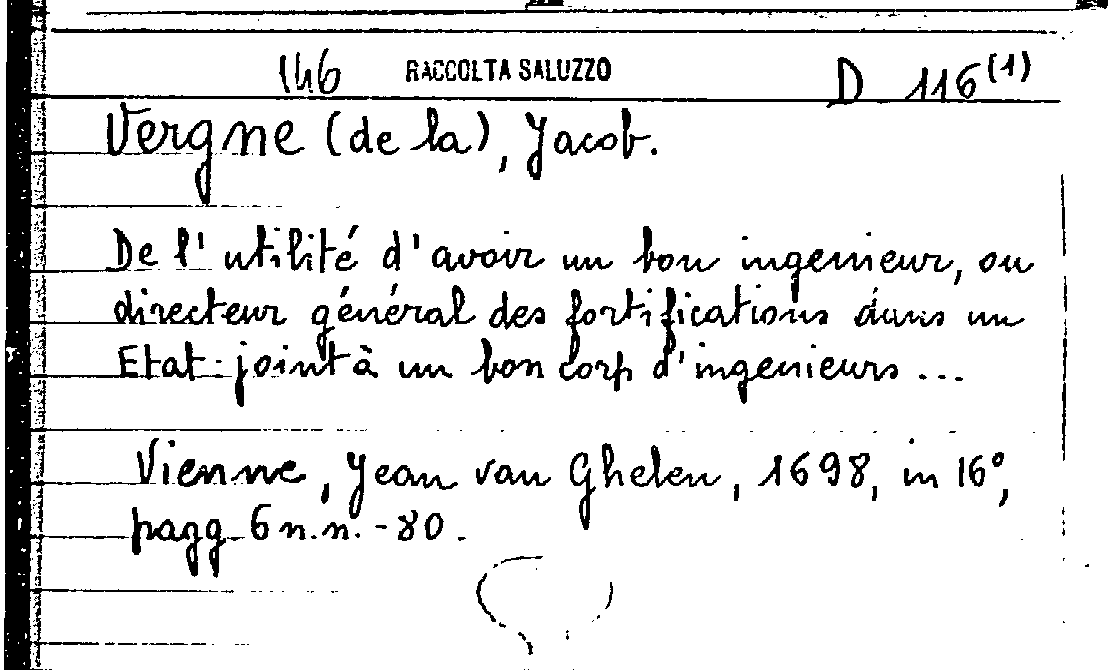 146 RACCOLTA SALUZZO D 116(1)
Vergne (de la), Jacob.
De l'utilité d'avoir un bon ingenieur, ou
directeur général des fortifications dans un
Etat: joint à un bon corp d'ingenieurs...
Vienne, Jean van Ghelen, 1698, in 16°,
pagg. 6 n.n. - 80.